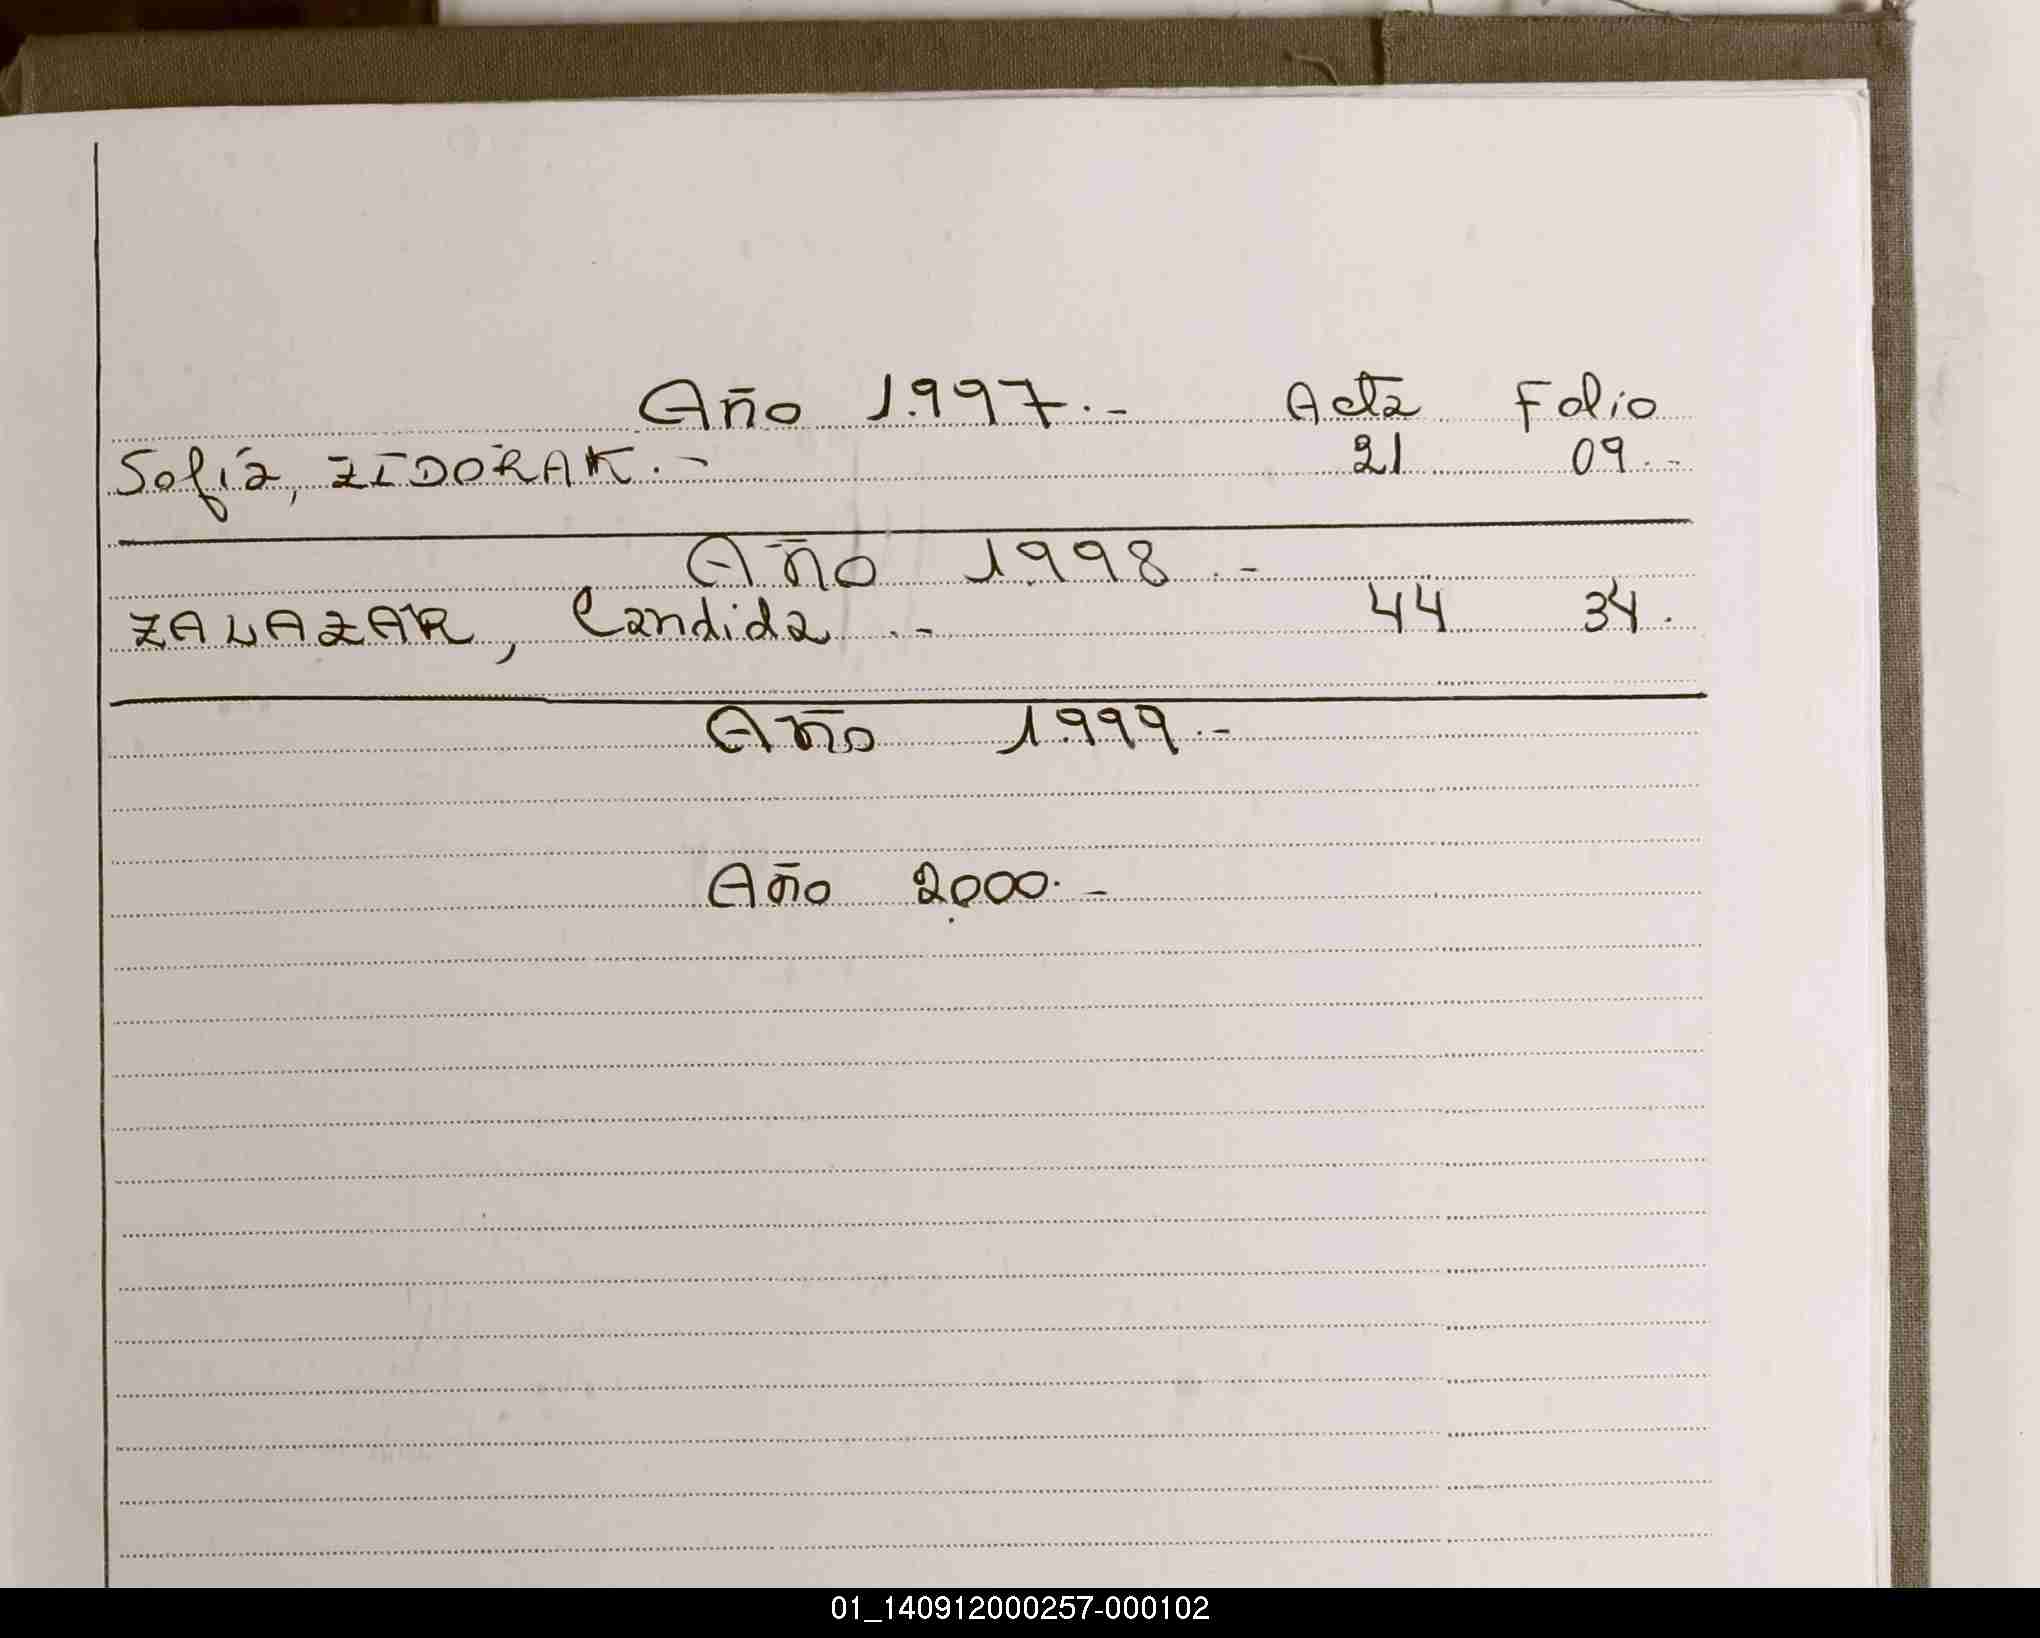 Año 1.997.- Acta Folio
Sofía, ZIDORAK.- 21 09.-
Año 1998.-
ZALAZAR, Candida.- 44 34.
Año 1.999.-
Año 2.000.-
01_140912000257-000102